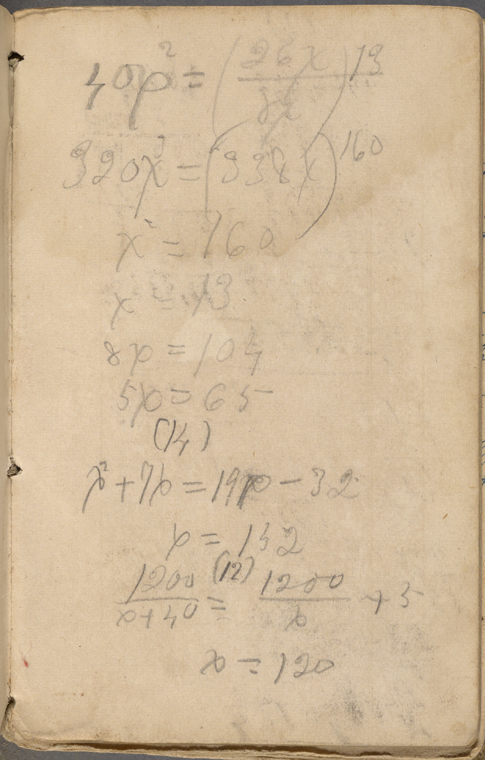 40x² = (26x/8x) 13
320x² = (338x) 160
x² = 160
x = 13
8x = 104
5x = 65
(14)
x² + 7x = 19x - 32
x = 132
(12)
1200/x+40 = 1200/x + 5
x = 120